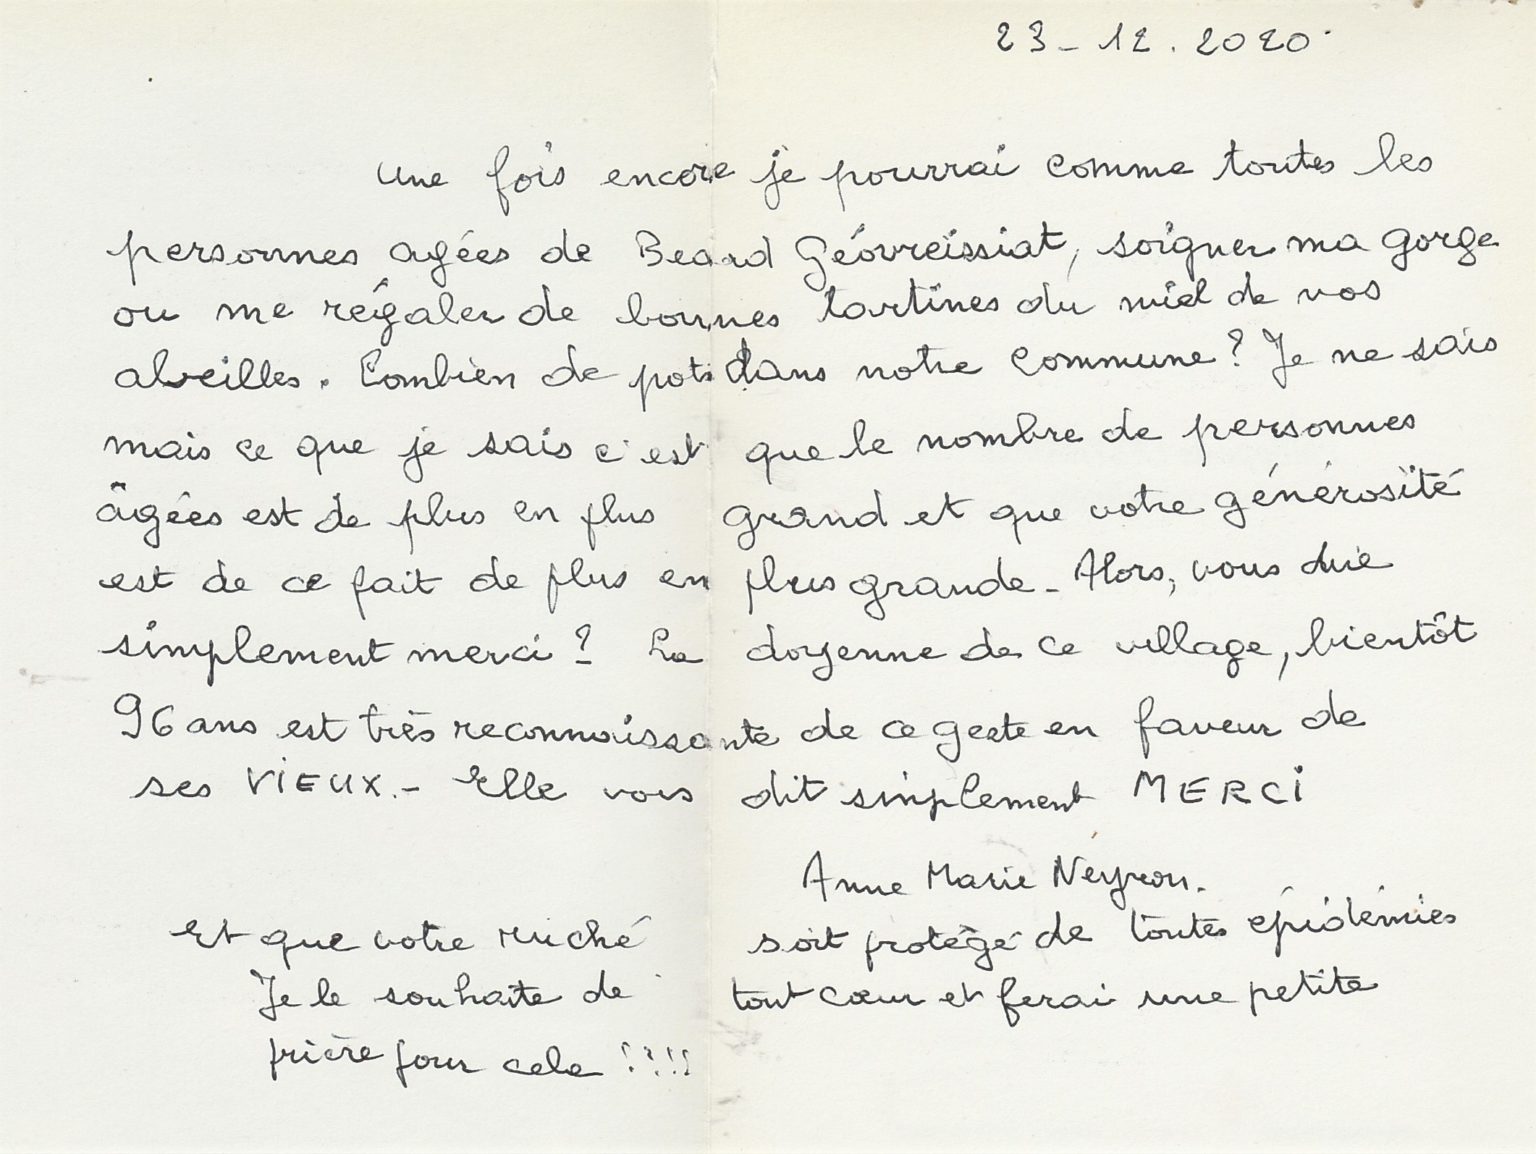 23-12.2020
Une fois encore je pourrai comme toutes les
personnes agées de Beard Géovreissiat, soigner ma gorge
ou me régaler de bonnes tartines du miel de vos
abeilles. Combien de pots dans notre commune ? Je ne sais
mais ce que je sais c'est que le nombre de personnes
âgées est de plus en plus grand et que votre générosité
est de ce fait de plus en plus grande - Alors, vous dire
simplement merci ? La doyenne de ce village, bientôt
96 ans est très reconnaissante de ce geste en faveur de
ses VIEUX.- Elle vous dit simplement MERCI
Anne Marie Neyron.
Et que votre ruche soit protégé de toutes epidémies
Je le souhaite de tout cœur et ferai une petite
prière pour cela !!!!